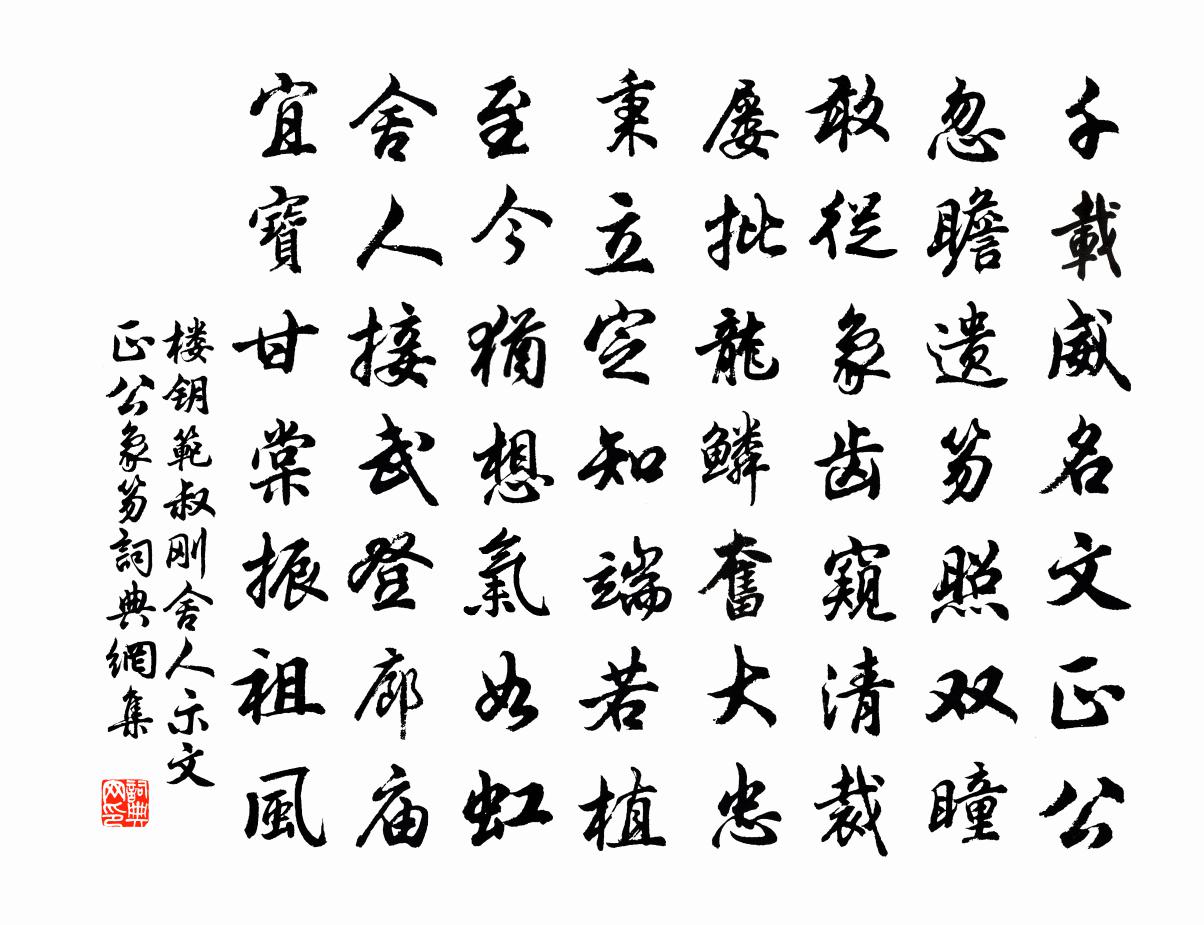 千載威名文正公
忽瞻遗笏照双瞳
敢從象齿窺清裁
屡批龍鳞奮大忠
秉立定知端若植
至今猶想氣如虹
舍人接武登廊庙
宜寶甘棠振祖風
楼钥範叔刚舍人示文
正公象笏詞典網集
詞典
网印